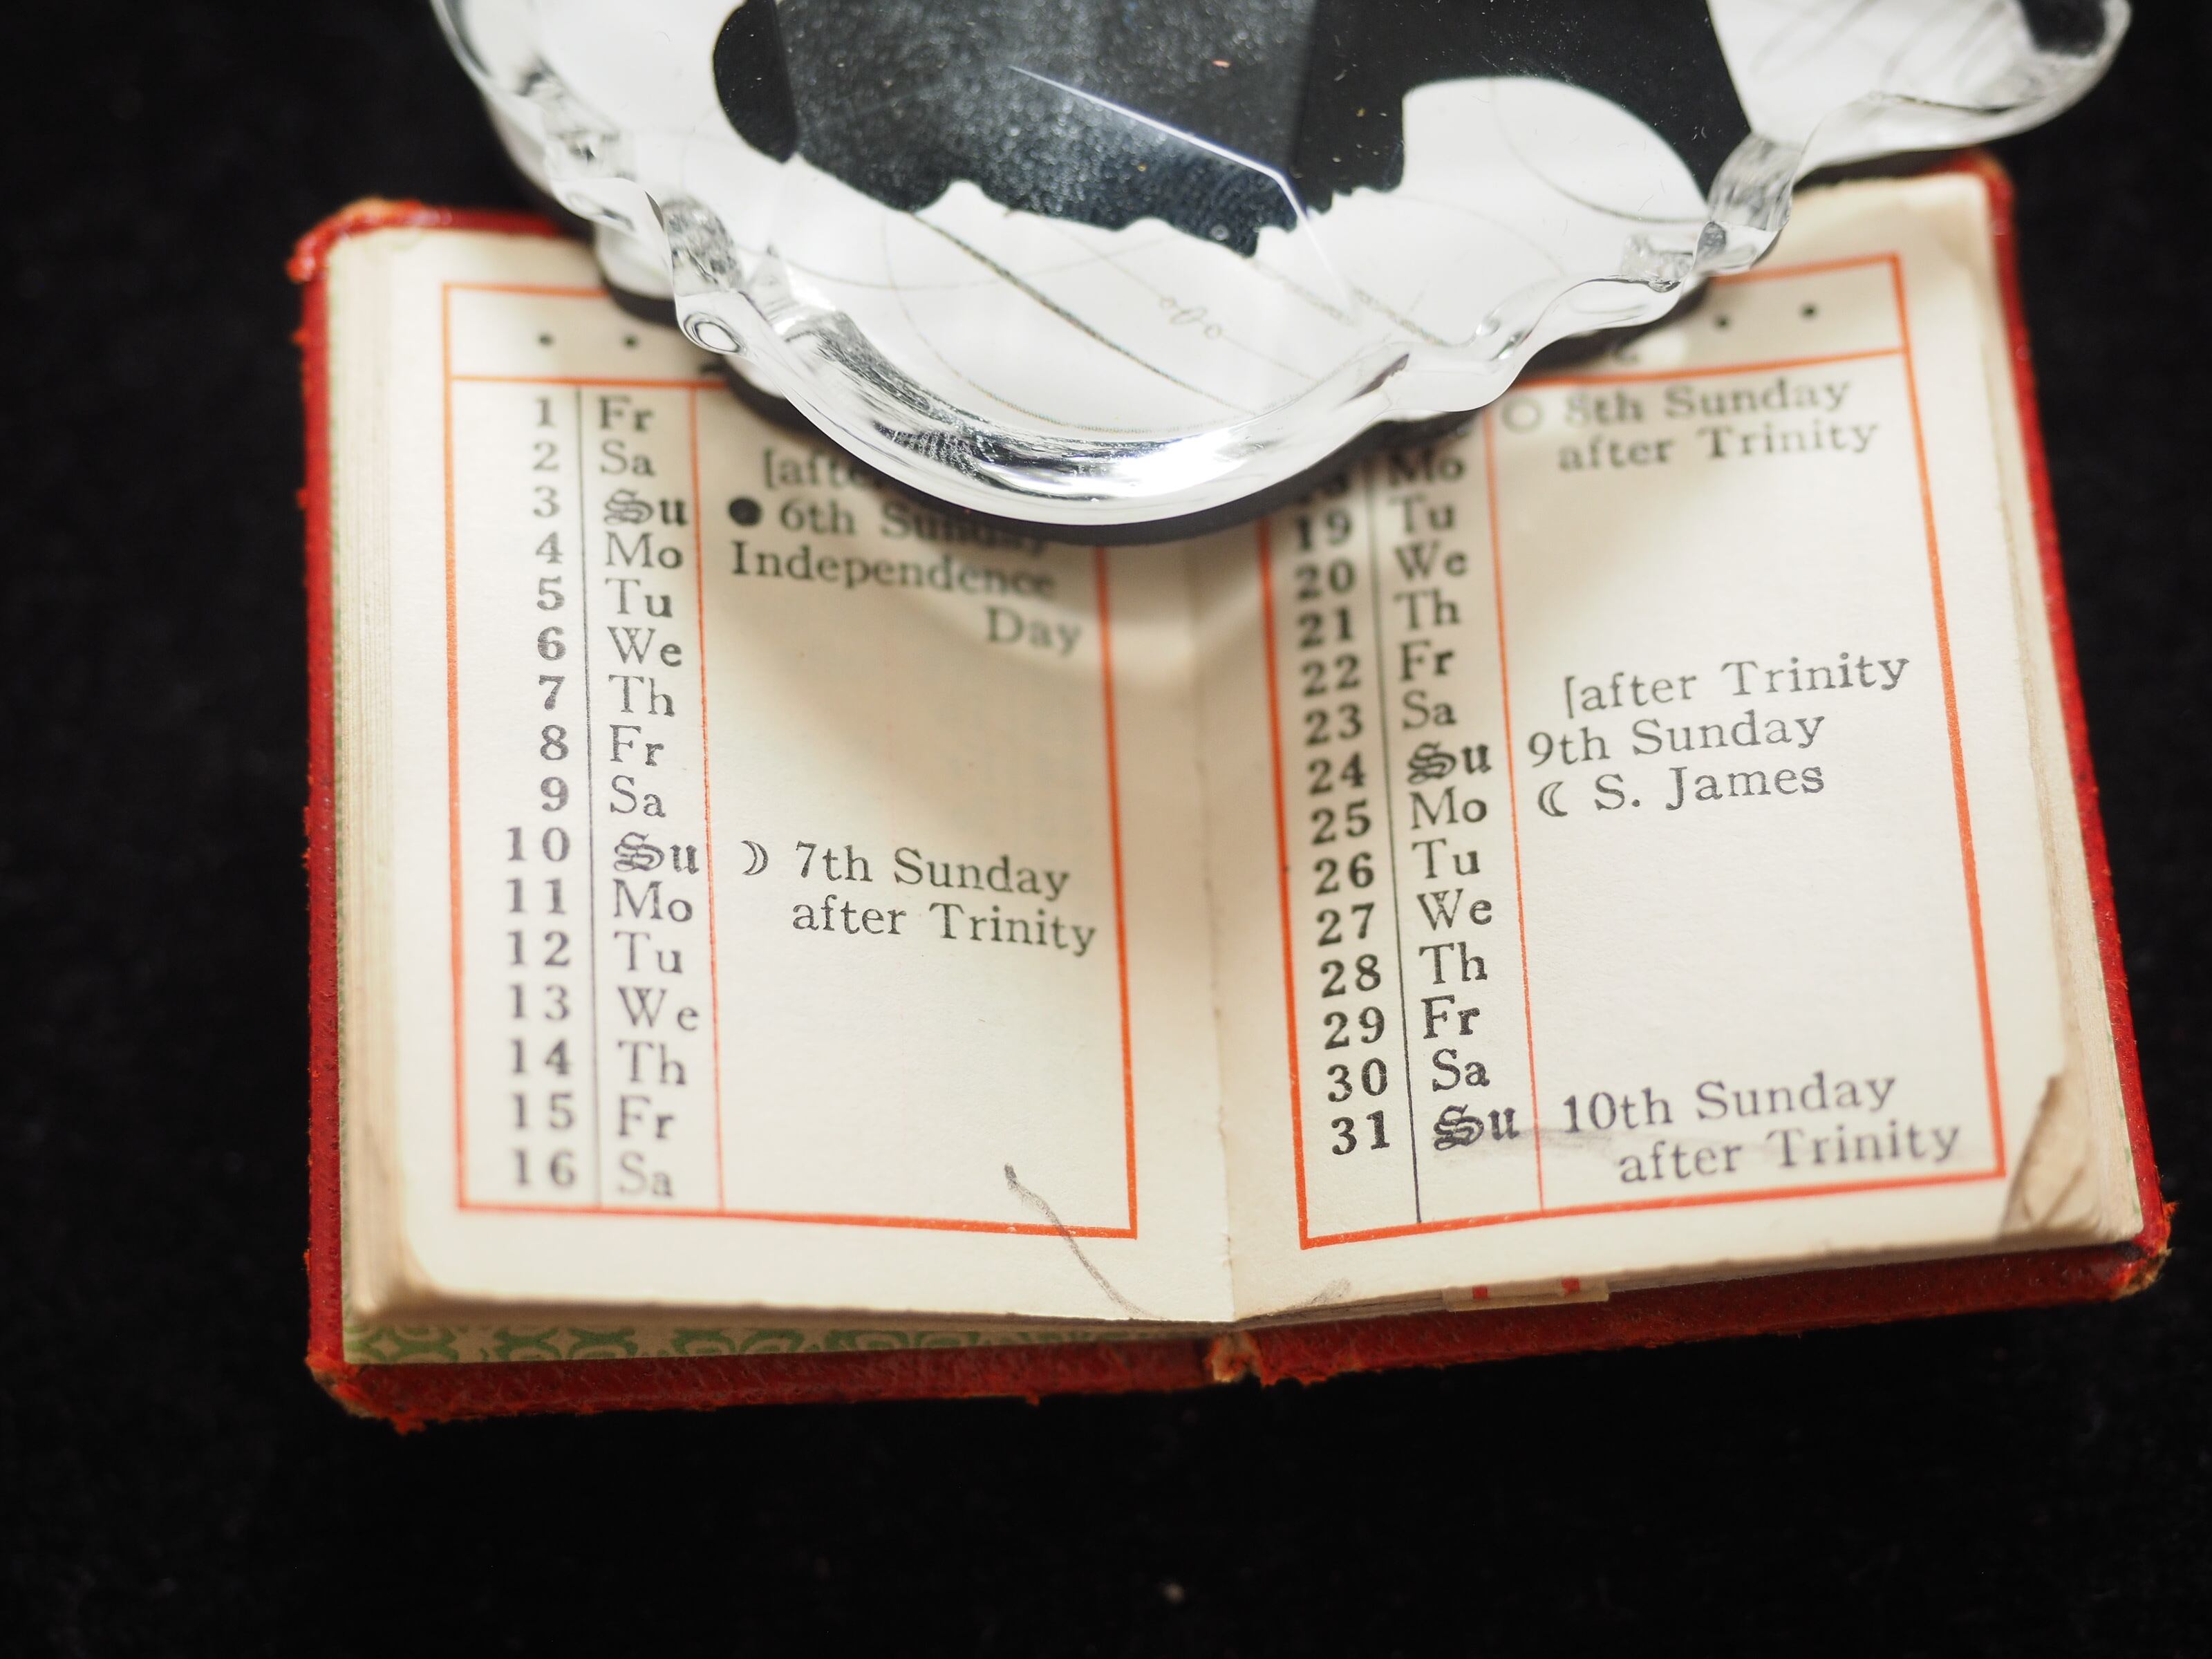 1 Fr
2 Sa [after
3 Su ● 6th Sunday
4 Mo Independence
5 Tu Day
6 We
7 Th
8 Fr
9 Sa
10 Su ☽ 7th Sunday
11 Mo after Trinity
12 Tu
13 We
14 Th
15 Fr
16 Sa
○ 8th Sunday
Mo after Trinity
19 Tu
20 We
21 Th
22 Fr
23 Sa [after Trinity
24 Su 9th Sunday
25 Mo ☾ S. James
26 Tu
27 We
28 Th
29 Fr
30 Sa
31 Su 10th Sunday
after Trinity